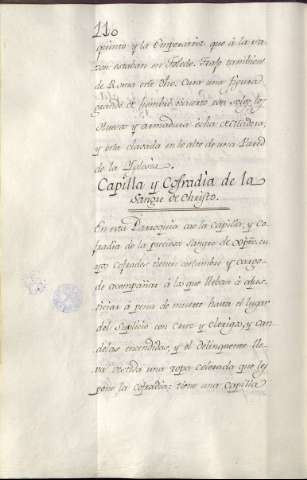 110
quinto y la Emperatriz que à la sa-
zon estaban en Toledo. Trajo tambien
de Roma este Obo. Cura una figura
grande de hombre
nueva y armadura echa
y esta clavada en lo alto de una Pared
de la Iglesia.
Capilla y Cofradìa de la
Sangre de Christo.
En esta Parroquia cae la capilla, y co-
fradia de la preciosa Sangre de Xpto. cu-
yos cofrades tienen costumbre y cargo
de acompañar à los que lleban à ajus-
ticiar à pena de muerte hasta el lugar
del Suplicio con Cera y clerigos, y can-
delas encendidas, y el delinquente lle-
va vestida una ropa colorada que les
pone la cofradia: tiene una capilla